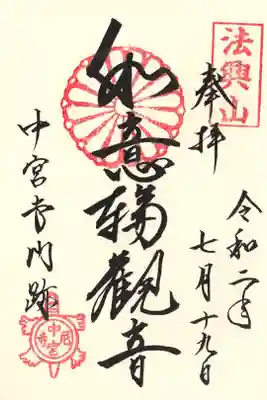 法興山
奉拝
令和二年
七月十九日
如意輪觀音
中宮寺門跡
中宮尼寺